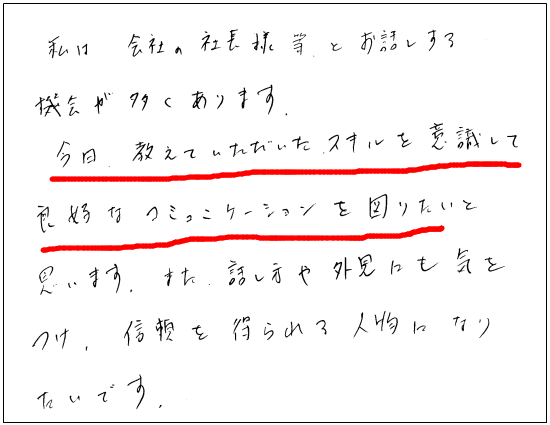 私は 会社の社長様等、とお話しする
機会が多くあります。
今日、教えていただいたスキルを意識して
良好なコミュニケーションを図りたいと
思います。また、話し方や外見にも気を
つけ、信頼を得られる人物になり
たいです。